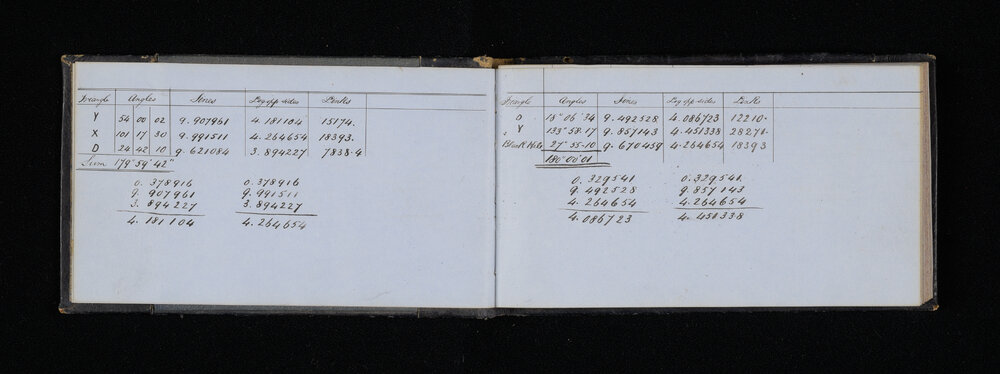 Triangle Angles Sines Log opp sides Links
Y 54 00 02 9.907961 4.181104 15174.
X 101 17 30 9.991511 4.264654 18393.
D 24 42 10 9.621084 3.894227 7838.4
Sum 179°59'42"
0.378916 0.378916
9.907961 9.991511
3.894227 3.894227
4.181104 4.264654
Triangle Angles Sines Log opp sides Links
D 18°06'34 9.492528 4.086723 12210.
Y 133°58.17 9.857143 4.451338 28271.
27°55.10 9.670459 4.264654 18393
180°00'01
0.329541 0.329541
9.492528 9.857143
4.264654 4.264654
4.086723 4.451338